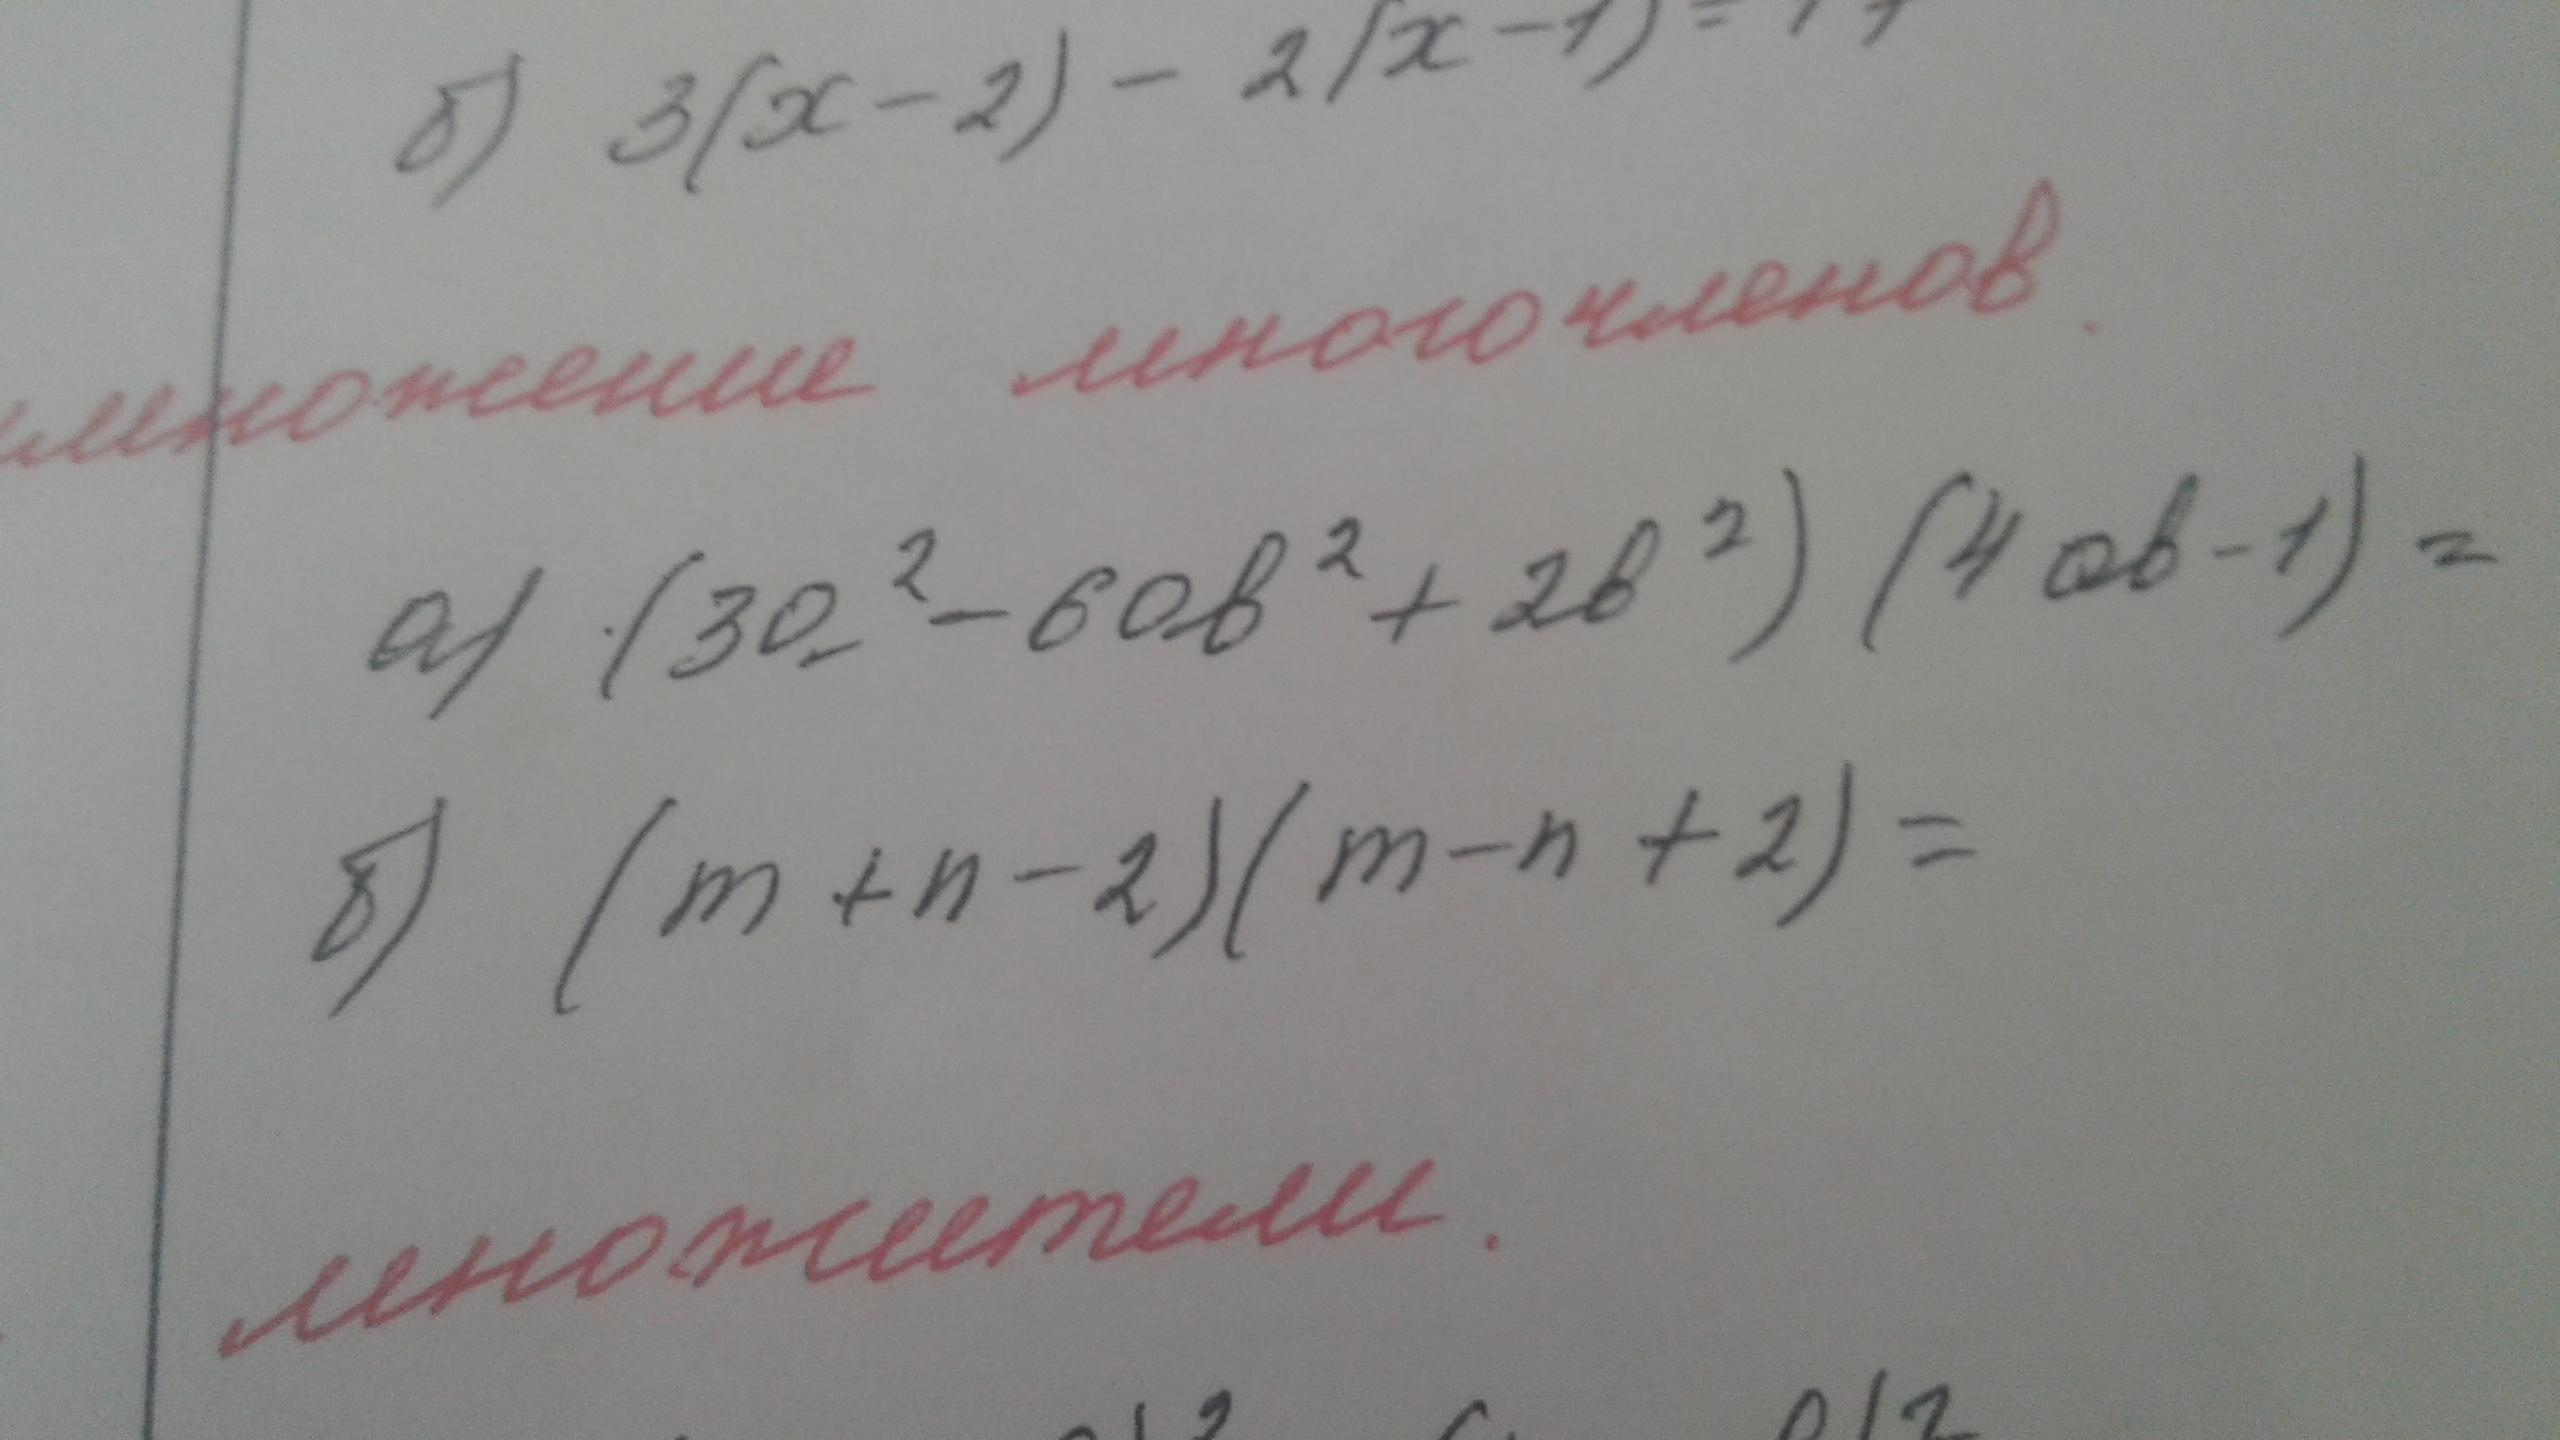 б) 3(x-2) - 2(x-1) =
множение многочленов.
а) (3a² - 6ab² + 2b²) (4ab - 1) =
б) (m + n - 2)(m - n + 2) =
множители.